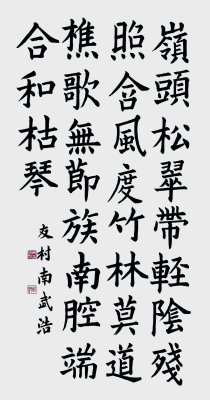 嶺頭松翠帶輕陰殘
照含風度竹林莫道
樵歌無節族南腔端
合和枯琴
友村南武浩